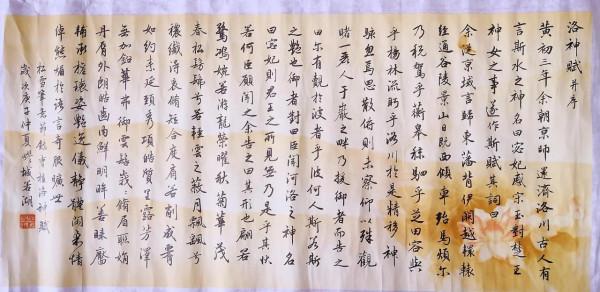 洛神賦 并序
黄初三年余朝京師還濟洛川古人有
言斯水之神名曰宓妃感宋玉對楚王
神女之事遂作斯賦其詞曰
余從京域言歸東藩背伊闕越轘轅
經通谷陵景山日既西傾車殆馬煩爾
乃税駕乎蘅皋秣駟乎芝田容與
乎楊林流眄乎洛川於是精移神
駭忽焉思散俯則未察仰以殊觀
睹一麗人于巖之畔乃援御者而告之
曰爾有觀於彼者乎彼何人斯若斯
之艷也御者對曰臣聞河洛之神名
曰宓妃則君王之所見無乃是乎其狀
若何臣願聞之余告之曰其形也翩若
驚鴻婉若游龍榮曜秋菊華茂
春松髣髴兮若輕雲之蔽月飄飄兮
穠纖得衷脩短合度肩若削成腰
如約素延頸秀項皓質呈露芳澤
無加鉛華弗御雲髻峨峨脩眉聯娟
丹唇外朗皓齒内鮮明眸善睞靨
輔承權瓌姿艷逸儀靜體閑柔情
綽態媚於語言奇服曠世
歲次庚子仲夏